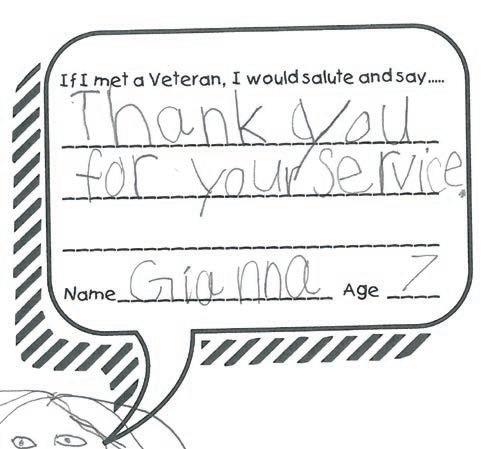 If I met a Veteran, I would salute and say.....
Thank you
for your service.
Name Gianna Age 7